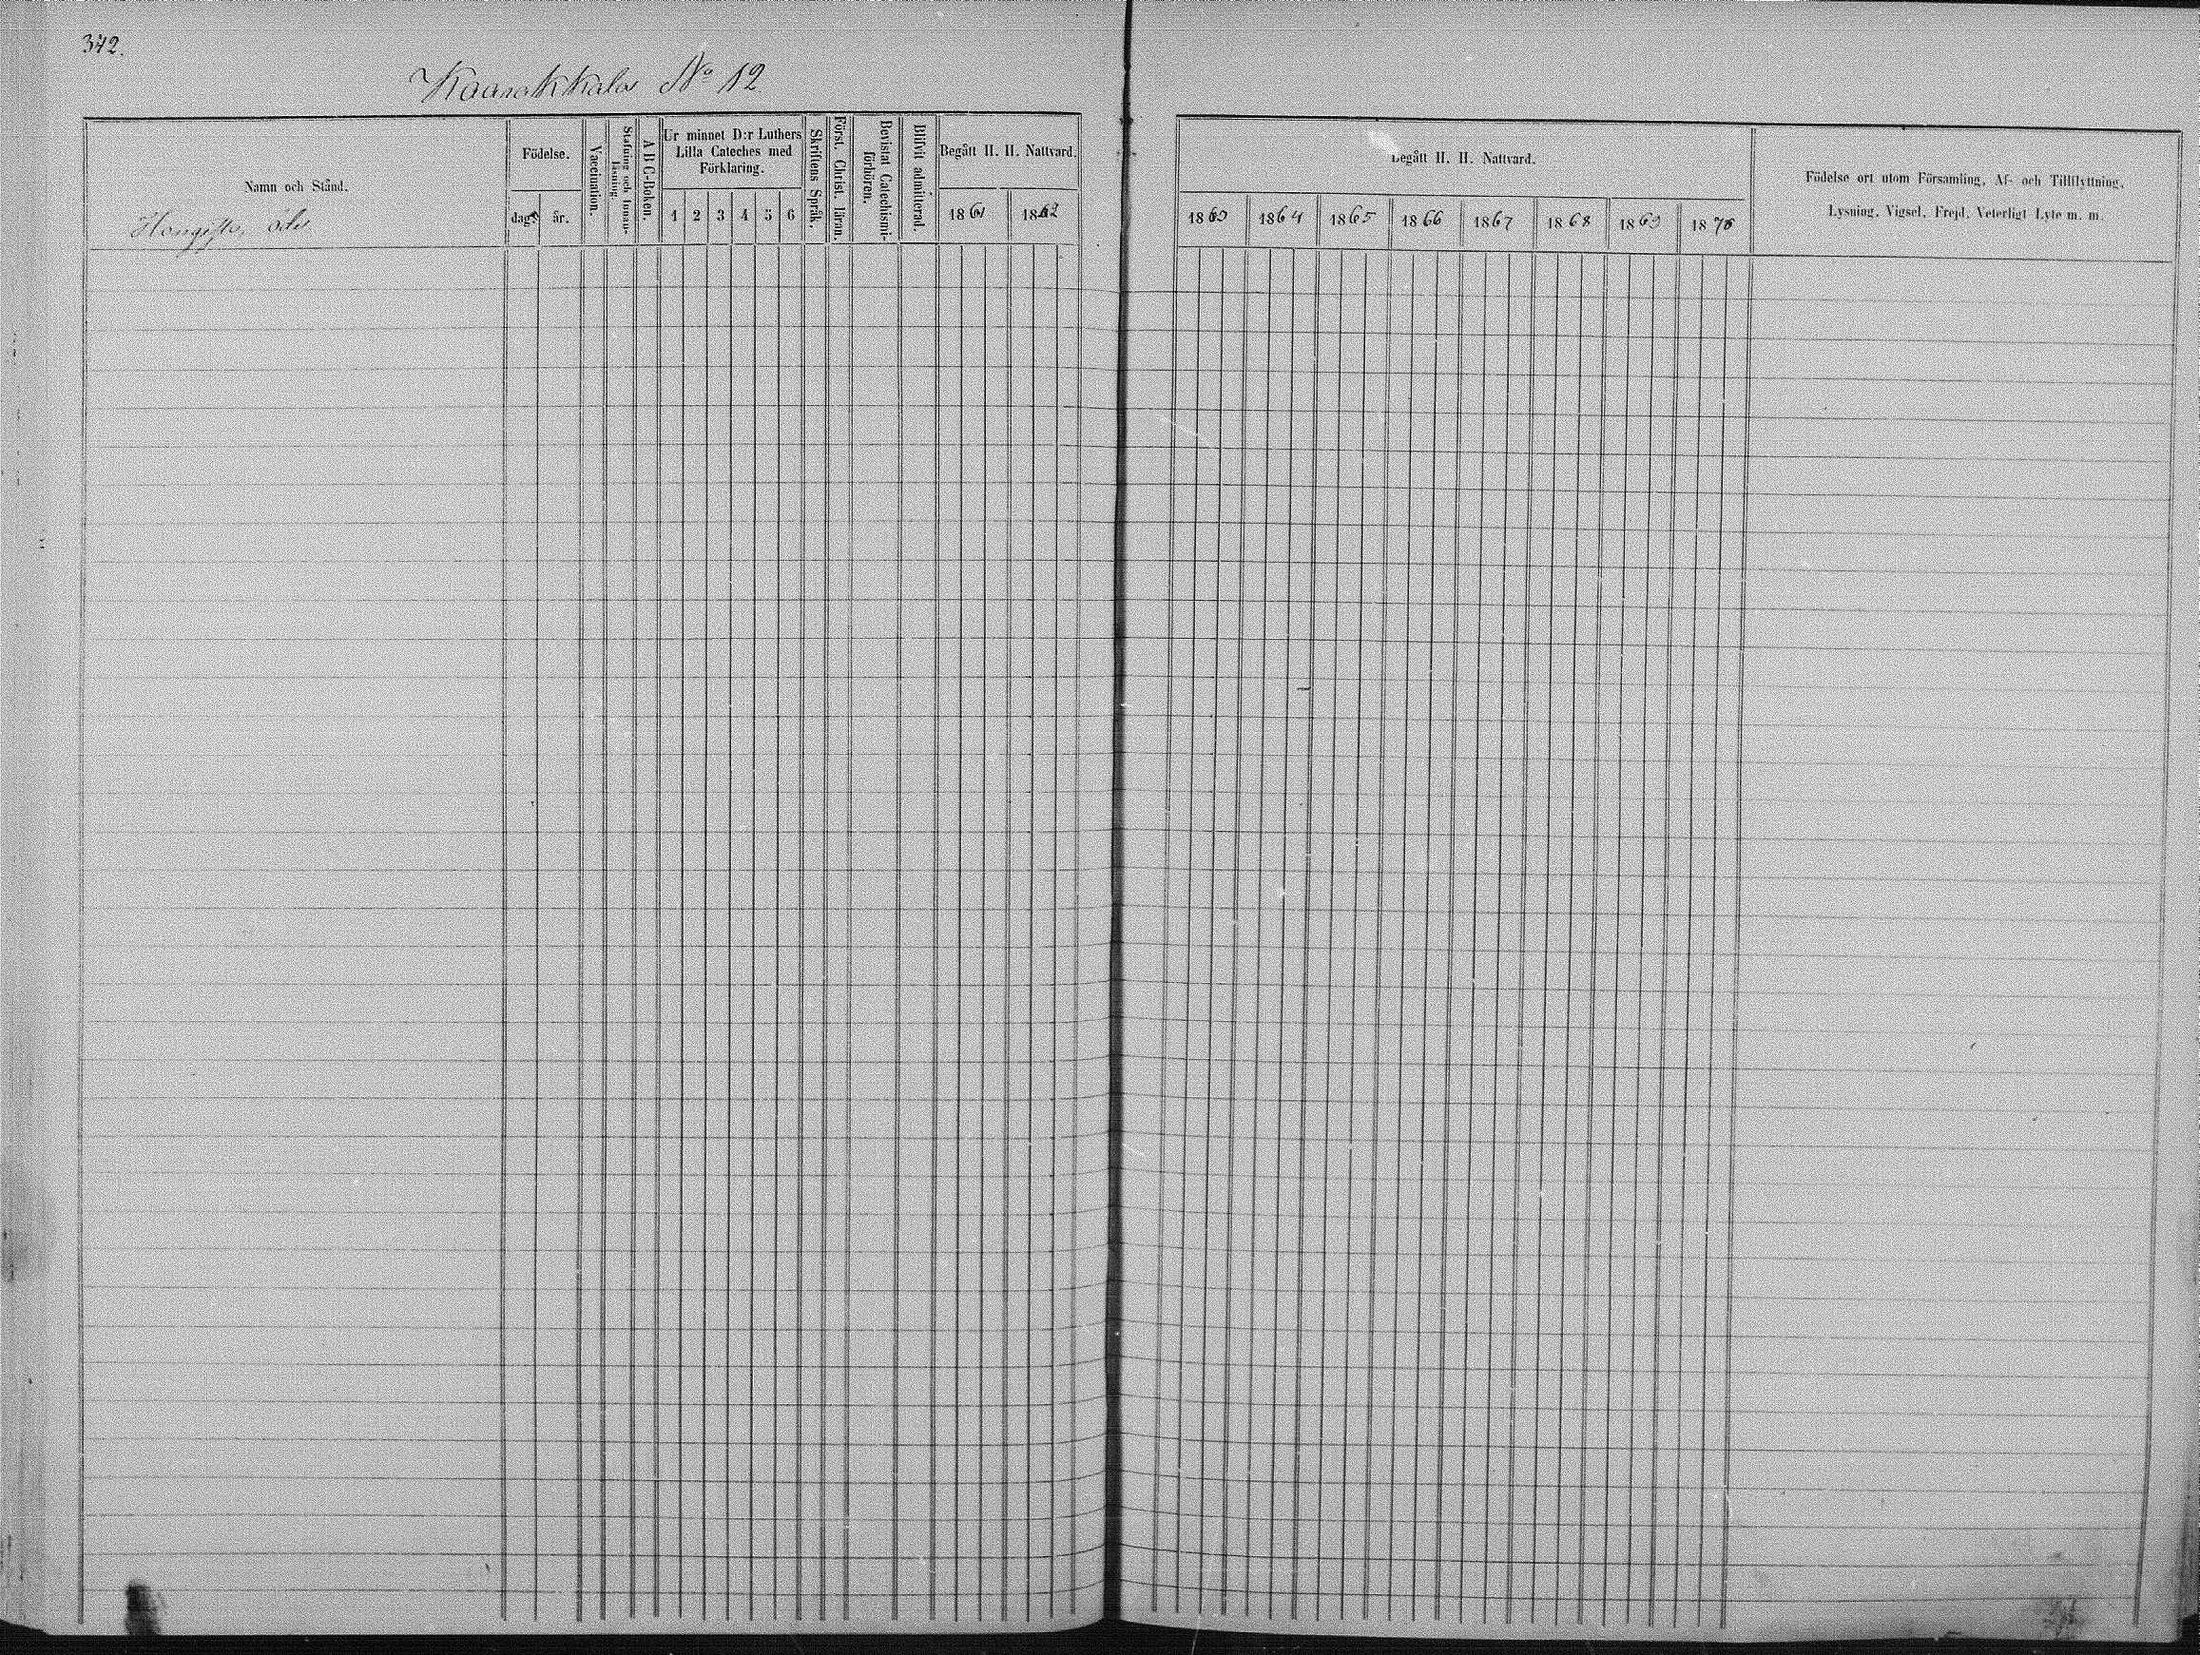 372.
Kaarakkala No 12
Namn och Stånd.
Födelse.
dag. år.
Vaccination.
Stafning och Innan-
läsning.
A B C-Boken.
Ur minnet D:r Luthers
Lilla Cateches med
Förklaring.
1 2 3 4 5 6
Skriftens Språk.
Först. Christ. läran.
Bevistat Catechismi-
förhören.
Blifvit admitterad.
Begått H. H. Nattvard.
1861 1862
Begått H. H. Nattvard.
1863 1864 1865 1866 1867 1868 1869 1870
Födelse ort utom Församling, Af- och Tillflyttning,
Lysning, Vigsel, Frejd, Veterligt Lyte m. m.